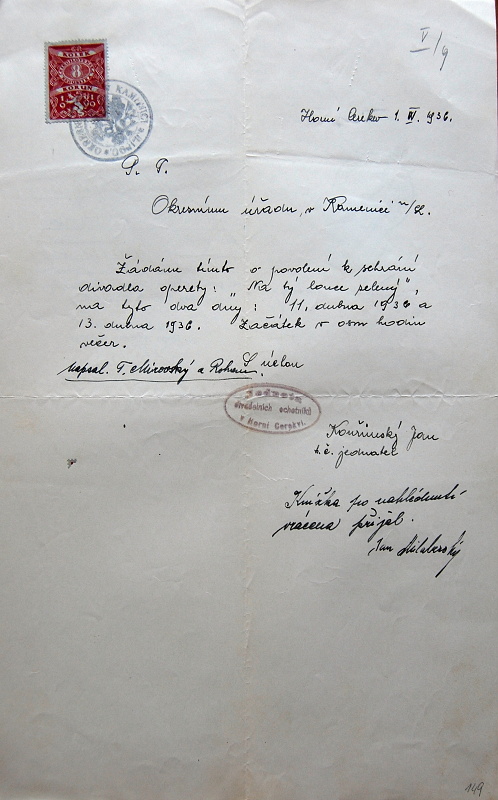 V/4
KOLEK
8
KORUN
KAMENICI
Horní Cerekev 1. IV. 1936.
P. T.
Okresnímu úřadu, v Kamenici n/L.
Žádáme tímto o povolení k sehrání
divadla operety: "Na tý louce zelený"
na tyto dva dny: 11. dubna 1936 a
13. dubna 1936. Začátek v osm hodin
večer.
napsal. T. a S úctou
Jednota
divadelních ochotníků
v Horní Cerekvi.
Kouřimský Jan
t. č. jednatel
Knížka po nahlédnutí
vrácena přijal.
Jan
149